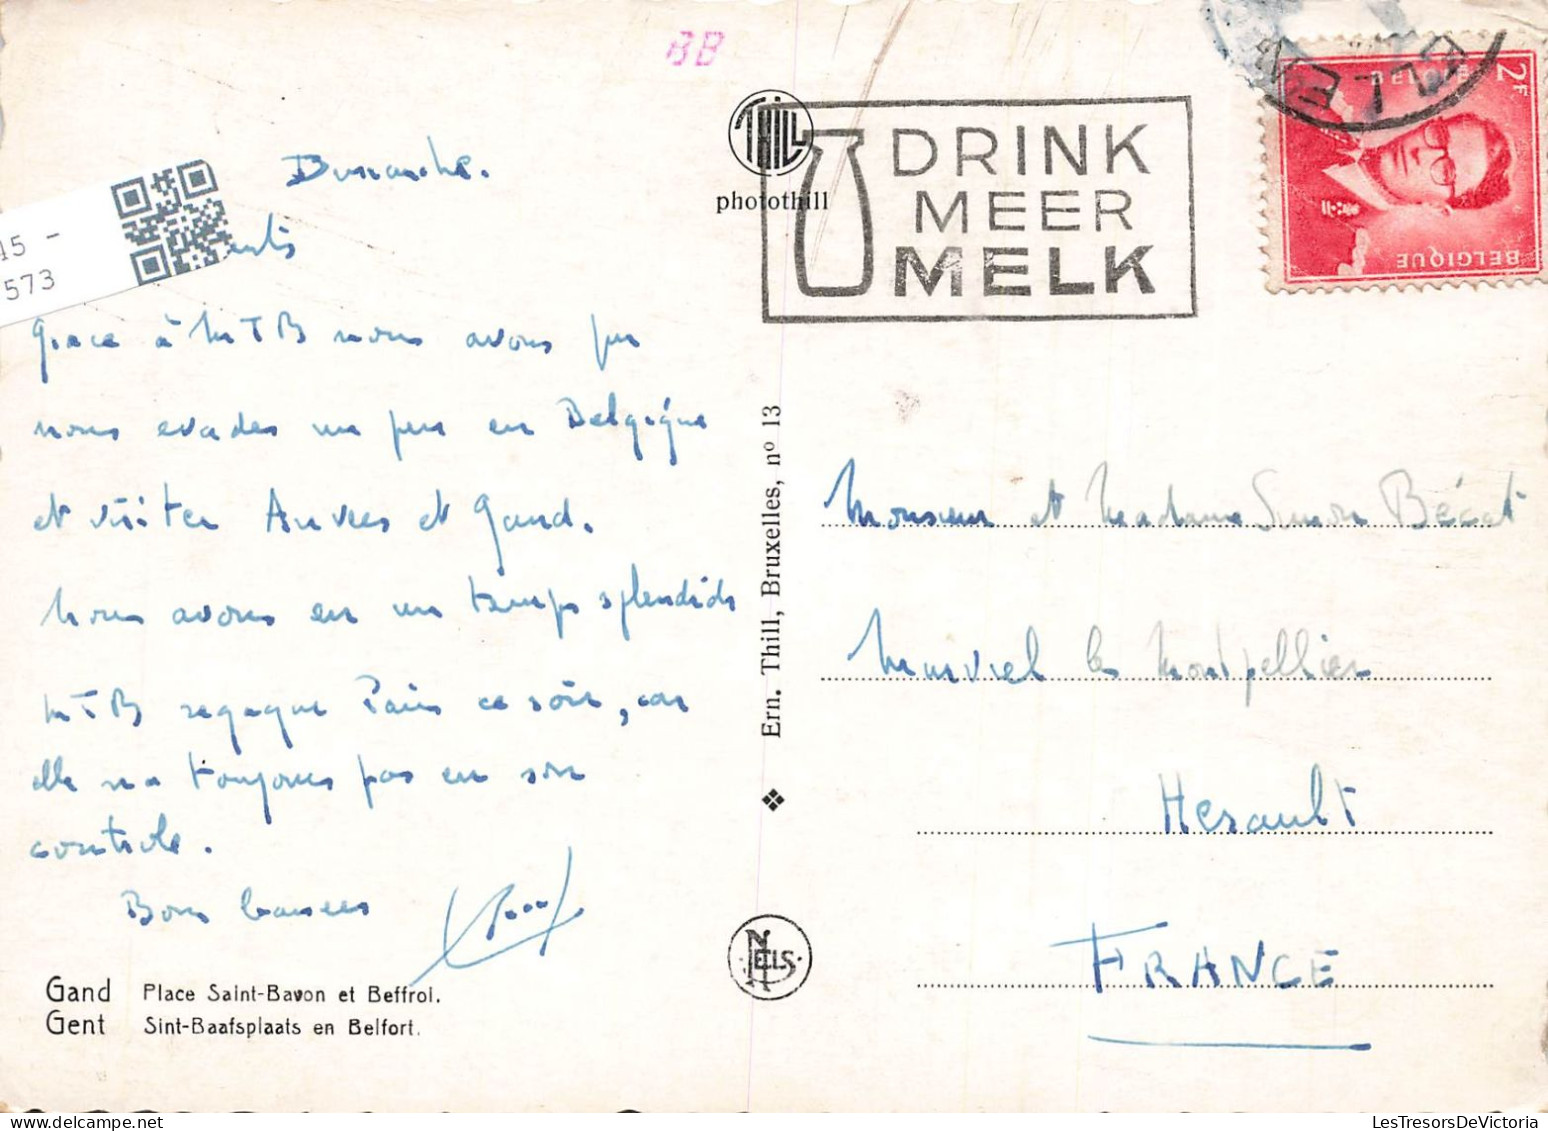 BB
Dimanche.
45 -
573
Grace à MTB nous avons pu
nous evader un peu en Belgique
et visiter Anvers et Gand.
Nous avons eu un temps splendide
MTB regagne Paris ce soir, car
elle n a toujours pas eu son
controle.
Bons baisers
Gand Place Saint-Bavon et Beffroi.
Gent Sint-Baafsplaats en Belfort.
THILL
photothill
Ern. Thill, Bruxelles, nº 13
NELS
DRINK
MEER
MELK
2F
BELGIE
BELGIQUE
Monsieur et Madame Simon Bécat
Murviel les Montpellier
Herault
FRANCE
LesTresorsDeVictoria.com